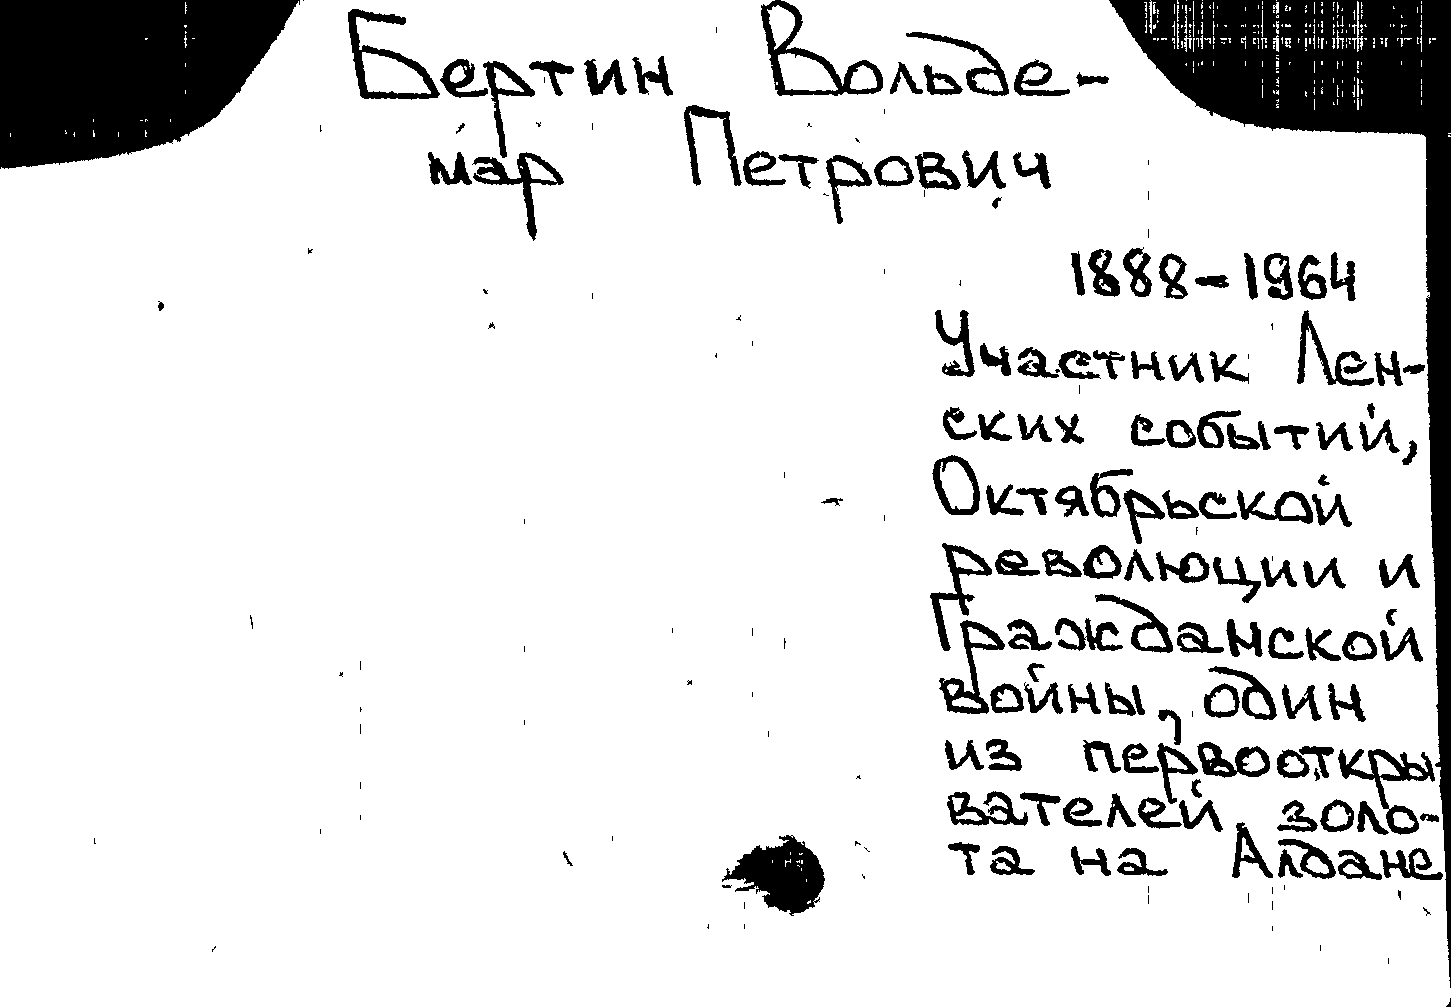 Бертин Вольде-
мар Петрович
1888-1964
Участник Лен-
ских событий,
Октябрьской
революции и
Гражданской
войны, один
из первооткры-
вателей золо-
та на Алдане